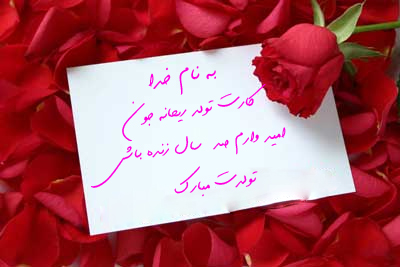 به نام خدا
کارت تولد ریحانه جون
امید وارم صد سال زنده باشی
تولدت مبارک